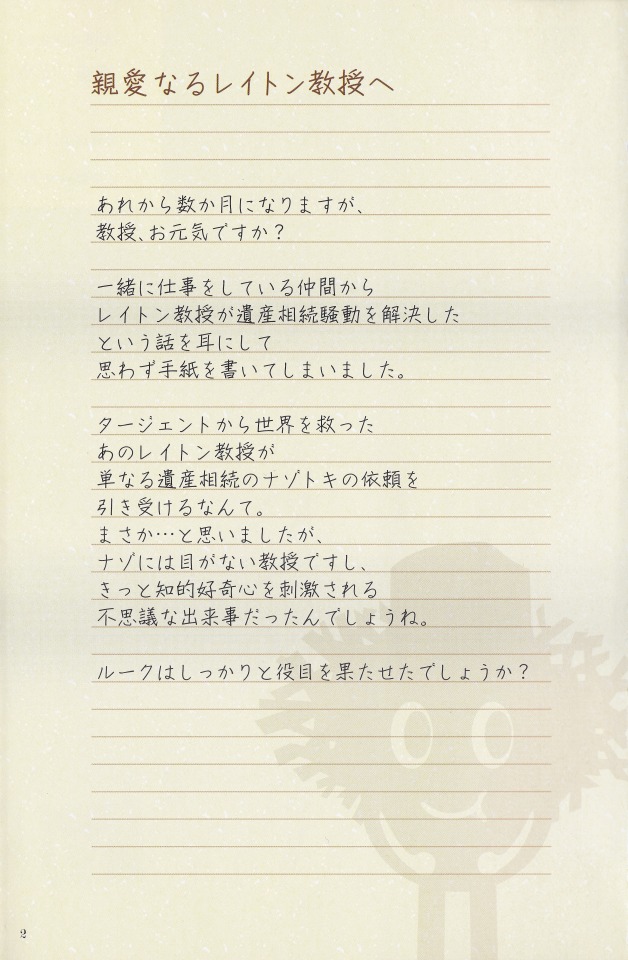 親愛なるレイトン教授へ
あれから数か月になりますが、
教授、お元気ですか？
一緒に仕事をしている仲間から
レイトン教授が遺産相続騒動を解決した
という話を耳にして
思わず手紙を書いてしまいました。
タージェントから世界を救った
あのレイトン教授が
単なる遺産相続のナゾトキの依頼を
引き受けるなんて。
まさか…と思いましたが、
ナゾには目がない教授ですし、
きっと知的好奇心を刺激される
不思議な出来事だったんでしょうね。
ルークはしっかりと役目を果たせたでしょうか？
2